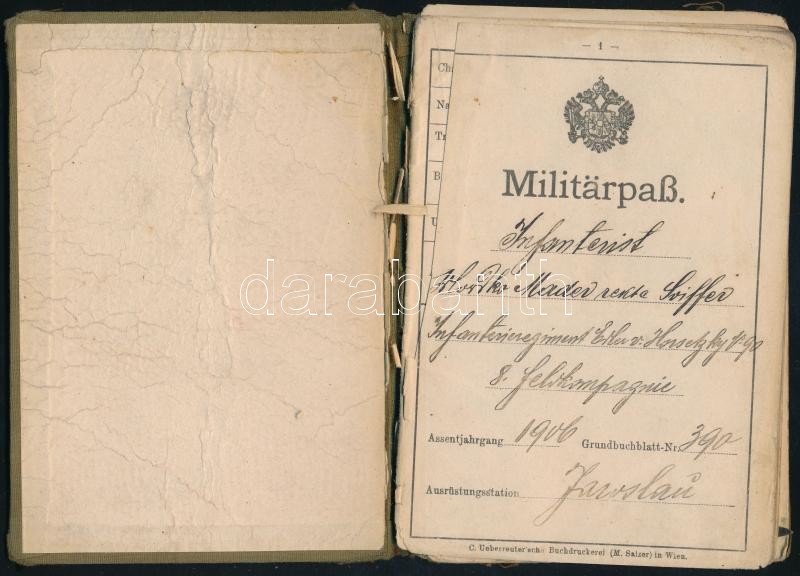 – 1 –
Ch
Na
Tr
B
U
Militärpaß.
Infanterist
Mader rekta Soiffer
Infanterieregiment Edler v. Horsetzky Nº 90
8. Feldkompagnie
Assentjahrgang 1906 Grundbuchblatt-Nr. 390
Ausrüstungsstation Jaroslau
C. Ueberreuter'sche Buchdruckerei (M. Salzer) in Wien.
darabanth